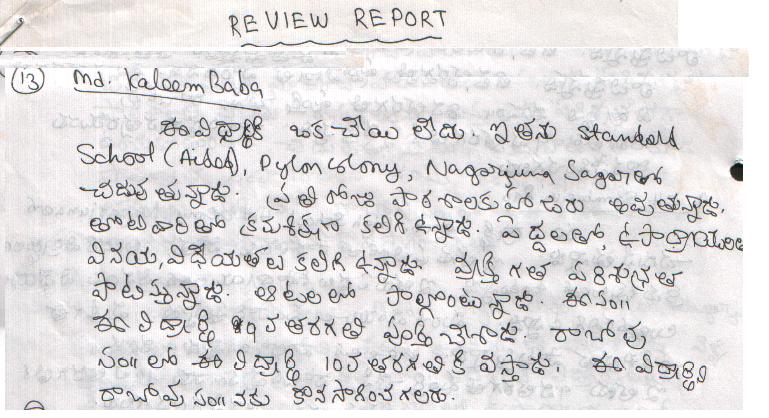 REVIEW REPORT
(13) Md. Kaleem Baba
ఈ విద్యార్థికి ఒక చేయి లేదు. ఇతను Standard
School (Aided), Pylon Colony, Nagarjuna Sagar లో
చదువుతున్నాడు. ప్రతి రోజు పాఠశాలకు హాజరు అవుతున్నాడు.
తోటివారితో క్రమశిక్షణ కలిగి ఉన్నాడు. పెద్దలతో, ఉపాధ్యాయులతో
వినయ, విధేయతలు కలిగి ఉన్నాడు. వ్యక్తిగత పరిశుభ్రత
పాటిస్తున్నాడు. ఆటలలో పాల్గొంటున్నాడు. ఈ సం॥
ఈ విద్యార్థి 9వ తరగతి పూర్తి చేశాడు. రాబోవు
సం॥లో ఈ విద్యార్థి 10వ తరగతికి వస్తాడు. ఈ విద్యార్థిని
రాబోవు సం॥నకు కొనసాగించగలరు.